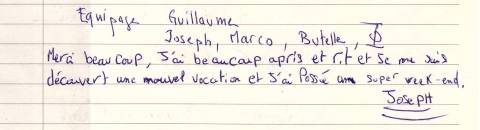 Equipage Guillaume
Joseph, Marco, Butelle,
Merci beaucoup, J'ai beaucoup apris et rit et Je me suis
découvert une nouvel vocation et J'ai Passé un super week-end.
JOSEPH